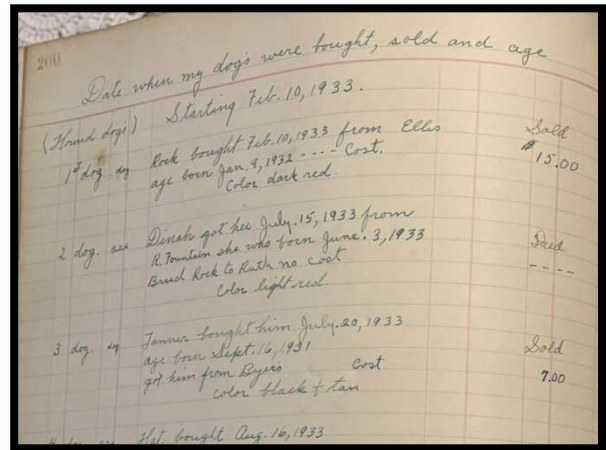 200
Date when my dog's were bought, sold and age
Starting Feb. 10, 1933.
(Hound dog's) Sold
1st dog. dog Rock bought Feb. 10, 1933 from Ellis $15.00
age born Jan. 9, 1932 - - - - Cost.
Color dark red.
2 dog. Dinah got her July. 15, 1933 from
R. Fountain she was born June. 3, 1933 Died
Bred Rock to Ruth no cost - - - -
Color light red.
3 dog. dog Tanner bought him July. 20, 1933
age born Sept. 16, 1931 Sold
got him from Byers Cost 7.00
color black & tan
bought Aug. 16, 1933